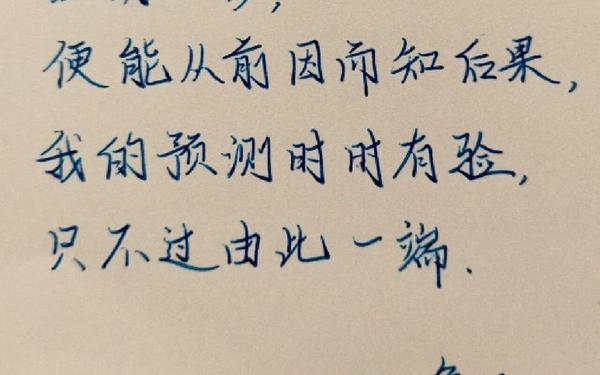 便能从前因而知后果，
我的预测时时有验，
只不过由此一端.